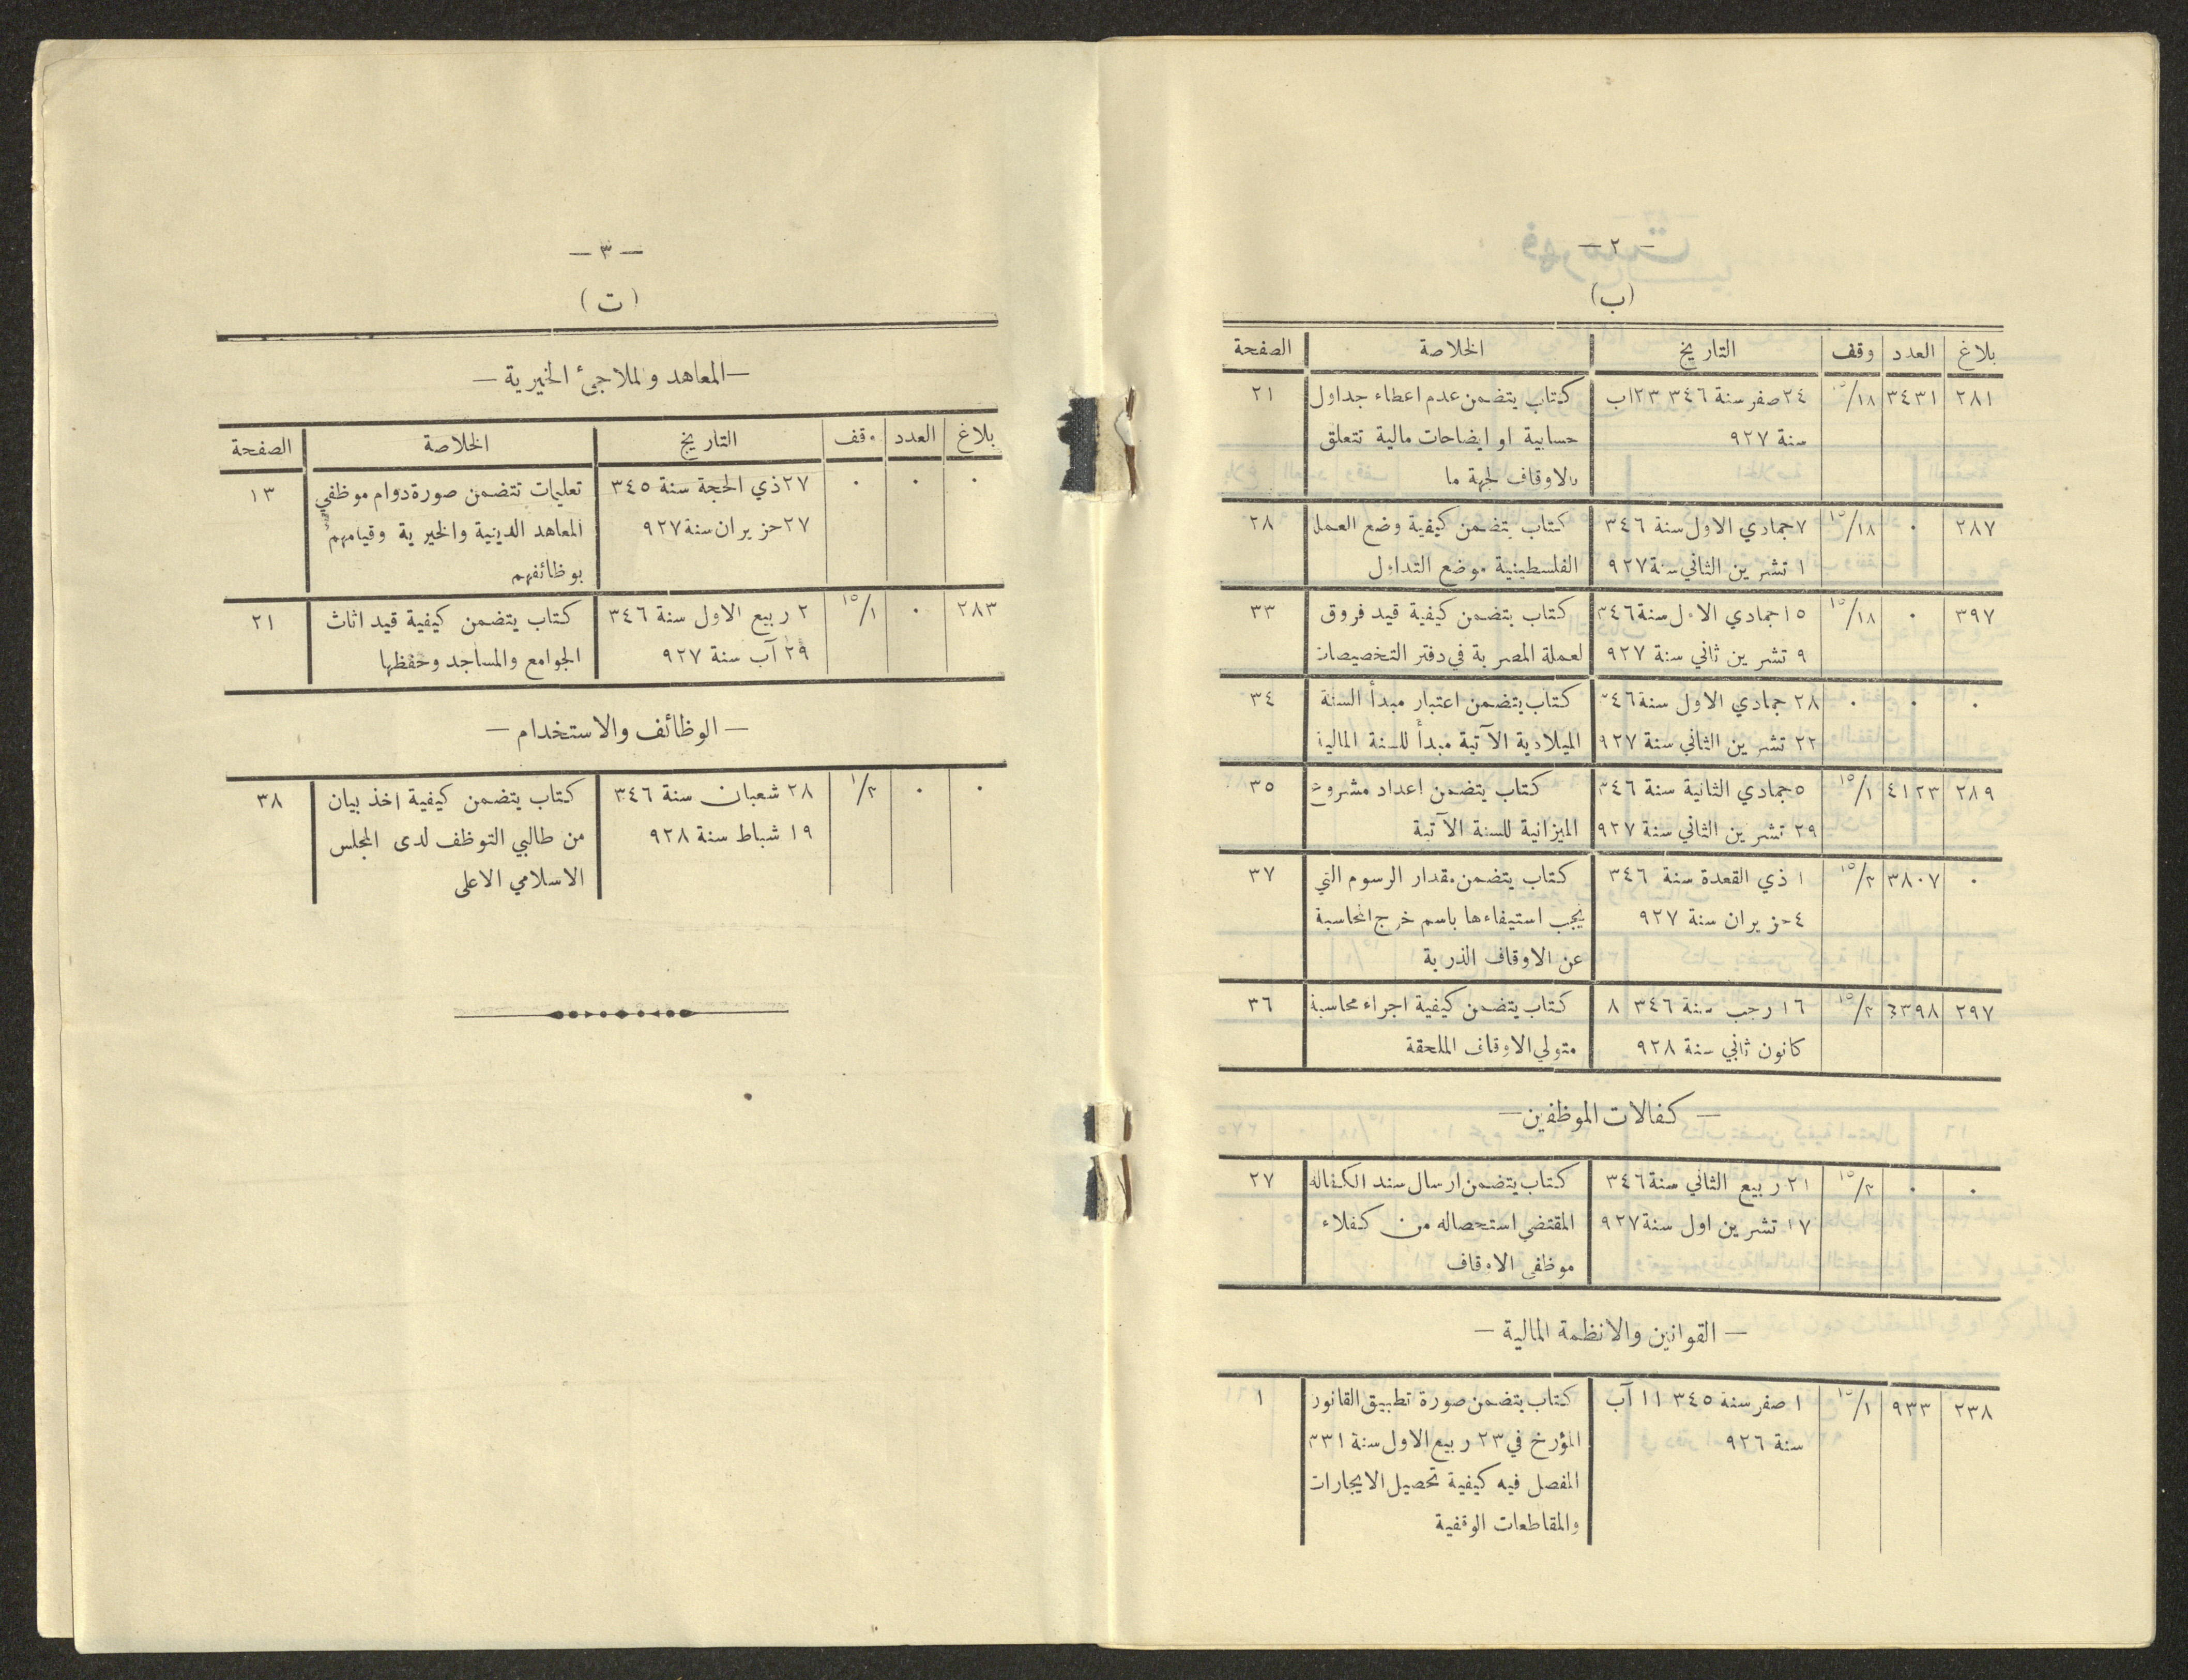 — ٢ —
(ب)
بلاغ العدد وقف التاريخ الخلاصة الصفحة
٢٨١ ٣٤٣١ ١٥/١٨ ٢٤ صفر سنة ٣٤٦ ٢٣ اب كتاب يتضمن عدم اعطاء جداول ٢١
سنة ٩٢٧ حسابية او ايضاحات مالية تتعلق
بالاوقاف لجهة ما
٢٨٧ ٠ ١٥/١٨ ٧ جمادي الاول سنة ٣٤٦ كتاب يتضمن كيفية وضع العملة ٢٨
١ تشرين الثاني سنة ٩٢٧ الفلسطينية موضع التداول
٣٩٧ ٠ ١٥/١٨ ١٥ جمادي الاول سنة ٣٤٦ كتاب يتضمن كيفية قيد فروق ٣٣
٩ تشرين ثاني سنة ٩٢٧ لعملة المصرية في دفتر التخصيصات
٠ ٠ ٠ ٢٨ جمادي الاول سنة ٣٤٦ كتاب يتضمن اعتبار مبدأ السنة ٣٤
٢٢ تشرين الثاني سنة ٩٢٧ الميلادية الآتية مبدأ للسنة المالية
٢٨٩ ٤١٢٣ ١٥/١ ٥ جمادي الثانية سنة ٣٤٦ كتاب يتضمن اعداد مشروع ٣٥
٢٩ تشرين الثاني سنة ٩٢٧ الميزانية للسنة الآتية
٠ ٣٨٠٧ ١٥/٢ ١ ذي القعدة سنة ٣٤٦ كتاب يتضمن مقدار الرسوم التي ٣٧
٤ حزيران سنة ٩٢٧ يجب استيفاءها باسم خرج المحاسبة
عن الاوقاف الذرية
٢٩٧ ٤٣٩٨ ١٥/٢ ١٦ رجب سنة ٣٤٦ ٨ كتاب يتضمن كيفية اجراء محاسبة ٣٦
كانون ثاني سنة ٩٢٨ متولي الاوقاف الملحقة
— كفالات الموظفين —
٠ ٠ ١٥/٢ ٢١ ربيع الثاني سنة ٣٤٦ كتاب يتضمن ارسال سند الكفاله ٢٧
١٧ تشرين اول سنة ٩٢٧ المقتضي استحصاله من كفلاء
موظفي الاوقاف
— القوانين والانظمة المالية —
٢٣٨ ٩٣٣ ١٥/١ ١ صفر سنة ٣٤٥ ١١ آب كتاب يتضمن صورة تطبيق القانون ١
سنة ٩٢٦ المؤرخ في ٢٣ ربيع الاول سنة ٣٣١
المفصل فيه كيفية تحصيل الايجارات
والمقاطعات الوقفية
— ٣ —
(ت)
— المعاهد والملاجئ الخيرية —
بلاغ العدد وقف التاريخ الخلاصة الصفحة
٠ ٠ ٠ ٢٧ ذي الحجة سنة ٣٤٥ تعليمات تتضمن صورة دوام موظفي ١٣
٢٧ حزيران سنة ٩٢٧ المعاهد الدينية والخيرية وقيامهم
بوظائفهم
٢٨٣ ٠ ١٥/١ ٢ ربيع الاول سنة ٣٤٦ كتاب يتضمن كيفية قيد اثاث ٢١
٢٩ آب سنة ٩٢٧ الجوامع والمساجد وحفظها
— الوظائف والاستخدام —
٠ ٠ ١/٢ ٢٨ شعبان سنة ٣٤٦ كتاب يتضمن كيفية اخذ بيان ٣٨
١٩ شباط سنة ٩٢٨ من طالبي التوظف لدى المجلس
الاسلامي الاعلى